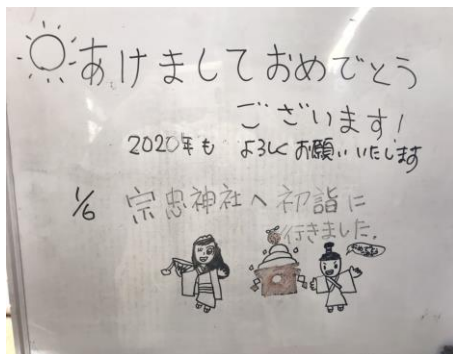 あけましておめでとう
ございます!
2020年も よろしくお願いいたします
1/6 宗忠神社へ初詣に
行きました.